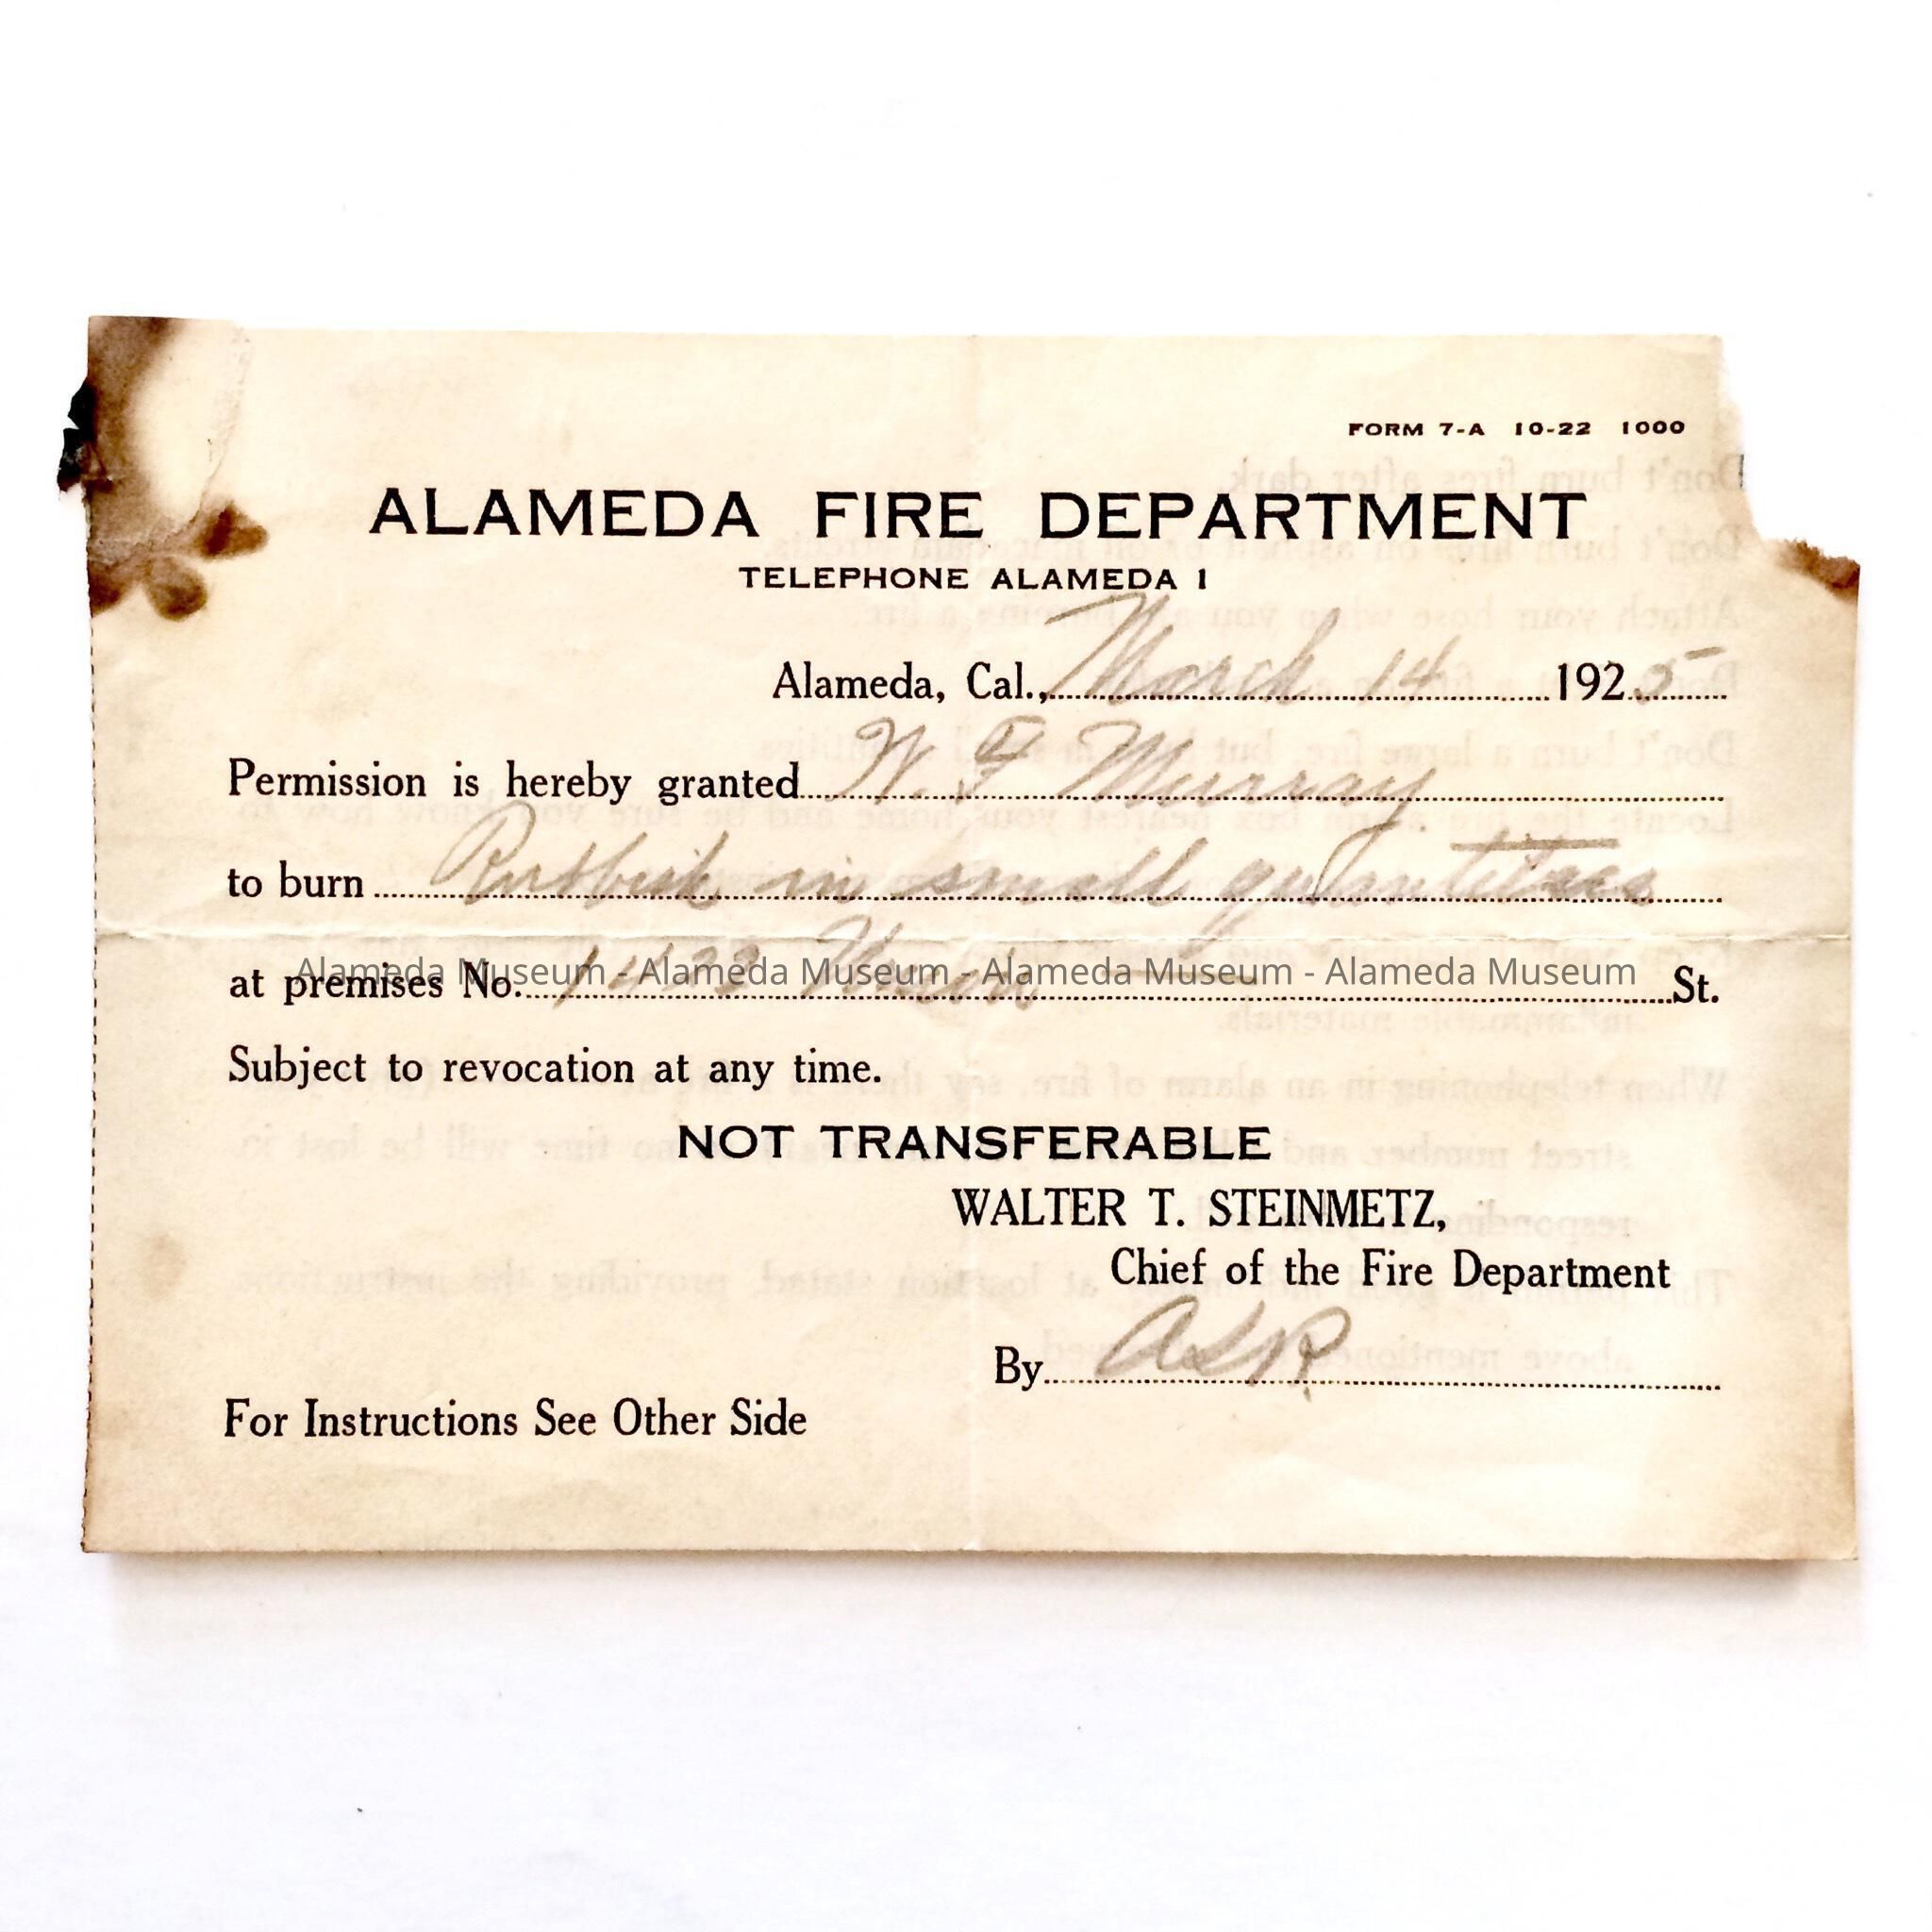 FORM 7-A 10-22 1000
ALAMEDA FIRE DEPARTMENT
TELEPHONE ALAMEDA 1
Alameda, Cal., March 14 1925
Permission is hereby granted W. F Murray
to burn Rubbish in small quantities
Alameda Museum - Alameda Museum - Alameda Museum - Alameda Museum
at premises No. St.
Subject to revocation at any time.
NOT TRANSFERABLE
WALTER T. STEINMETZ,
Chief of the Fire Department
By
For Instructions See Other Side